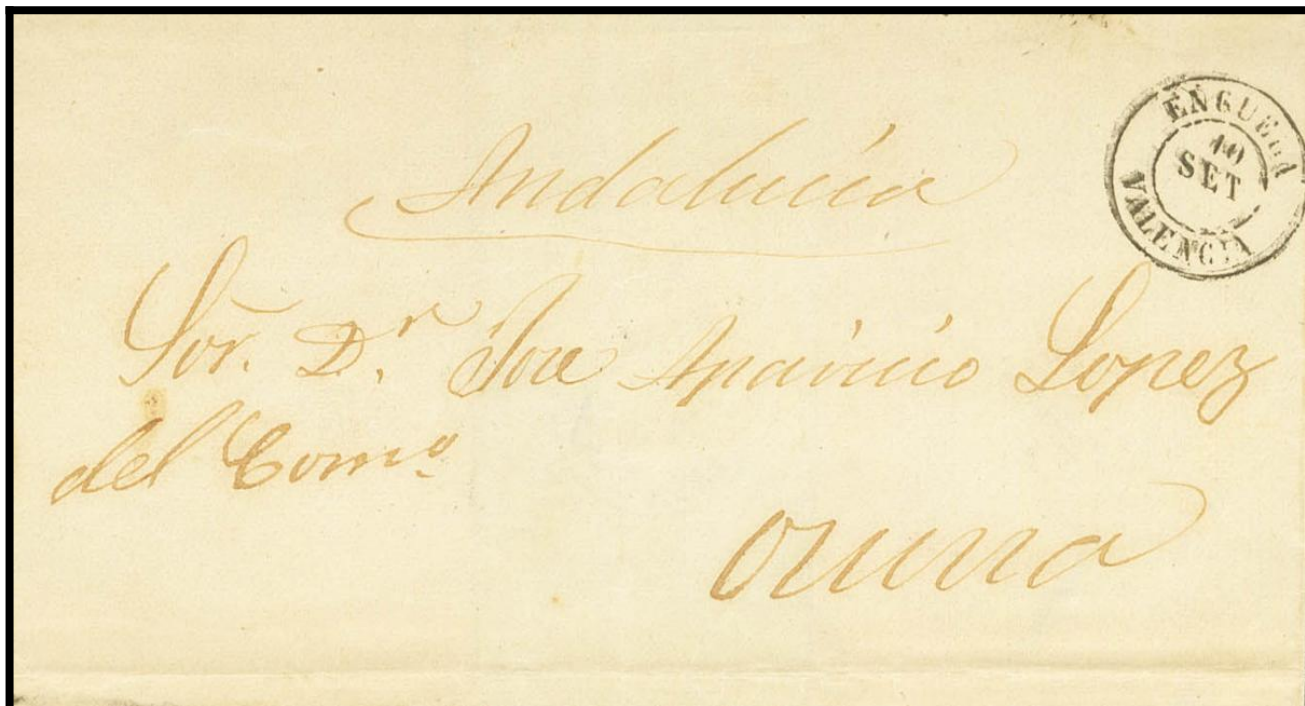 Andalucia
ENGUERA
10
SET
VALENCIA
Sor. D.n Jose Aparicio Lopez
del Como
Osuna